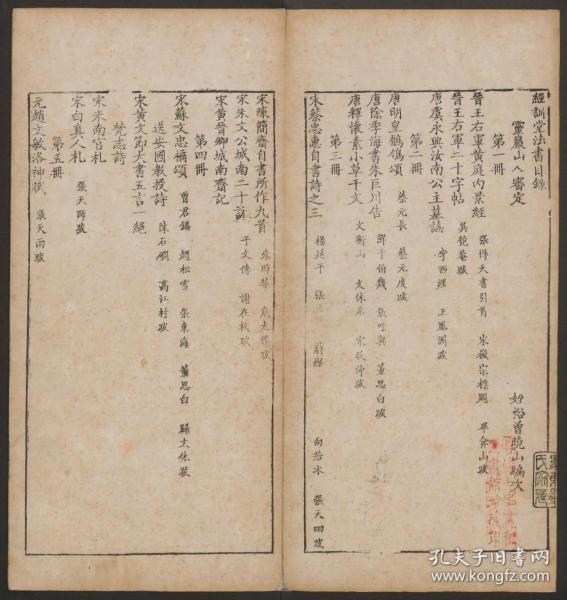 經訓堂法書目錄
靈巖山人審定
好裕曾曉山編次
第一冊
晉王右軍黃庭內景經 張得天書引首 宋徽宗標題 畢弇山跋
晉王右軍二十字帖 吳匏菴跋
唐虞永興汝南公主墓誌 李西涯 王鳳洲跋
第二冊
唐明皇鶺鴒頌 蔡元長 蔡元度跋
唐徐季海書朱巨川告 鮮于伯幾 張可與 董思白跋
唐釋懷素小草千文 文衡山 文休承 宋牧仲跋
第三冊
宋蔡忠惠自書詩之三 楊延平 張 蔚 向若冰 張天雨跋
宋陳簡齋自書所作九首 朱時 跋
宋朱文公城南二十詠 干文傳 謝在杭跋
宋黃晉卿城南齋記
第四冊
宋蘇文忠橘頌 曹君錫 趙松雪 張東海 董思白 歸文休跋
送安國教授詩 陳石 高江村跋
宋黃文節大書五言一絕
梵志詩
宋米南宮札
宋白真人札 張天師跋
第五冊
元趙文敏洛神賦 張天雨跋
孔夫子旧书网
www.kongfz.com